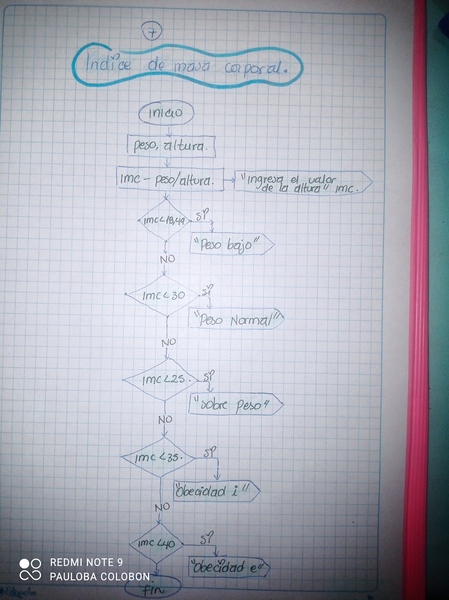 7
Indice de masa corporal.
inicio
peso, altura.
imc - peso/altura.
"ingresa el valor
de la altura" imc.
imc<18,49
SP
"Peso bajo"
NO
imc<30
SP
"Peso Normal"
NO
imc<25.
SP
"sobre peso"
NO
imc<35.
SP
"Obecidad i"
NO
imc<40
SP
"Obecidad e"
Fin
REDMI NOTE 9
PAULOBA COLOBON